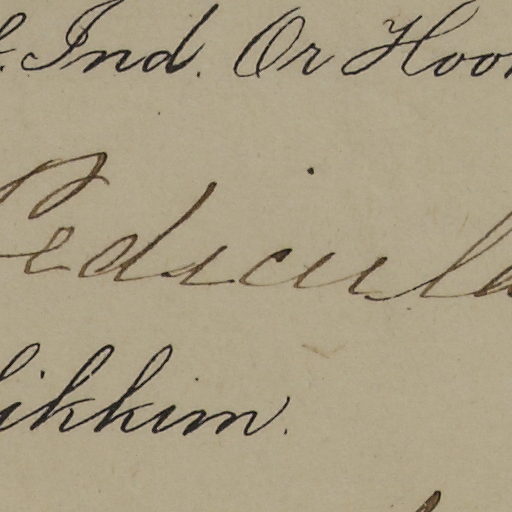 . Ind. Or Hook
Pedicula
Sikkim.